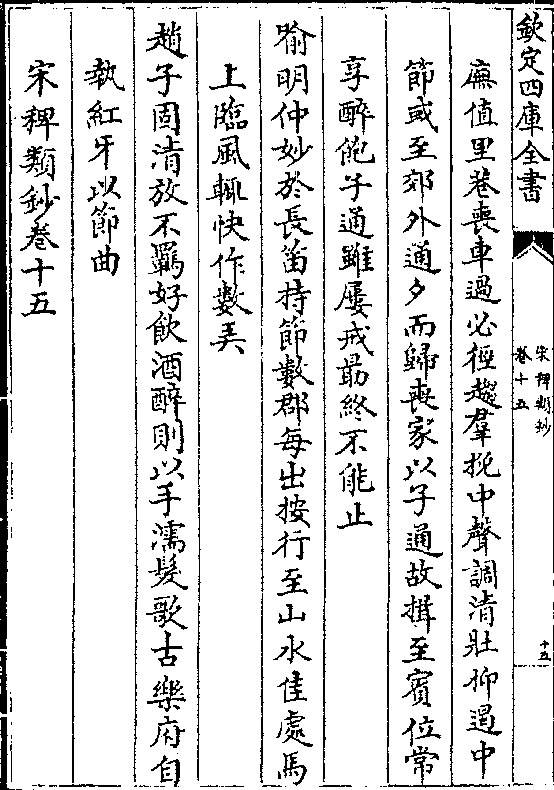 欽定四庫全書
宋稗類鈔
卷十五
十五
廡值里巷喪車過必徑趨羣挽中聲調清壯抑遏中
節或至郊外通夕而歸喪家以子通故揖至賓位常
享醉飽子通雖屢戒勗終不能止
喻明仲妙於長笛持節數郡每出按行至山水佳處馬
上臨風輒快作數弄
趙子固清放不羈好飲酒醉則以手濡髮歌古樂府自
執紅牙以節曲
宋稗類鈔卷十五